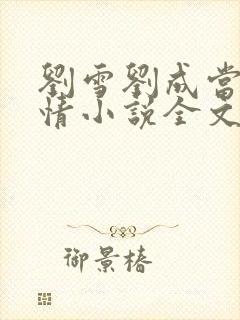 劉雪劉成當
情小說全文
御景椿